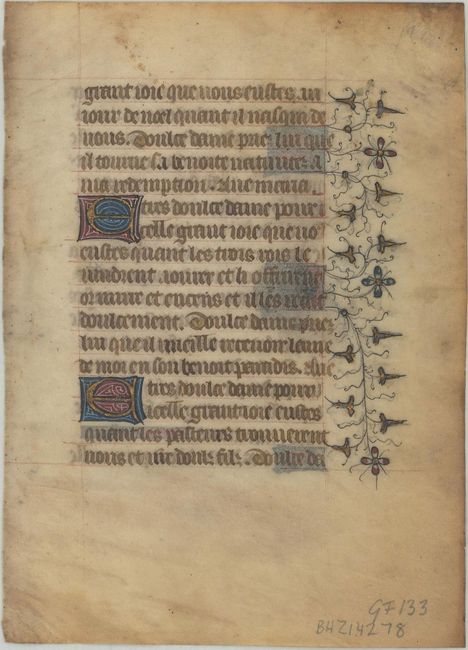 grant ioie que uous eustes au
iour de noel quant il nasqui de
uous. Doulce dame priez lui que
il tourne sa benoite natiuite a
ma redemption. Aue maria.
Etres doulce dame pour i
celle grant ioie que uo
eustes quant les trois rois le
uindrent aourer et li offrirent
or mirre et encens et il les recut
doulcement. Doulce dame priez
lui que il vueille receuoir lame
de moi en son benoit paradis. Aue
Etres doulce dame pour
icelle grant ioie eustes
quant les pasteurs trouuerent
uous et vie doulz filz. Doulce da
GF 133
BHZ14278